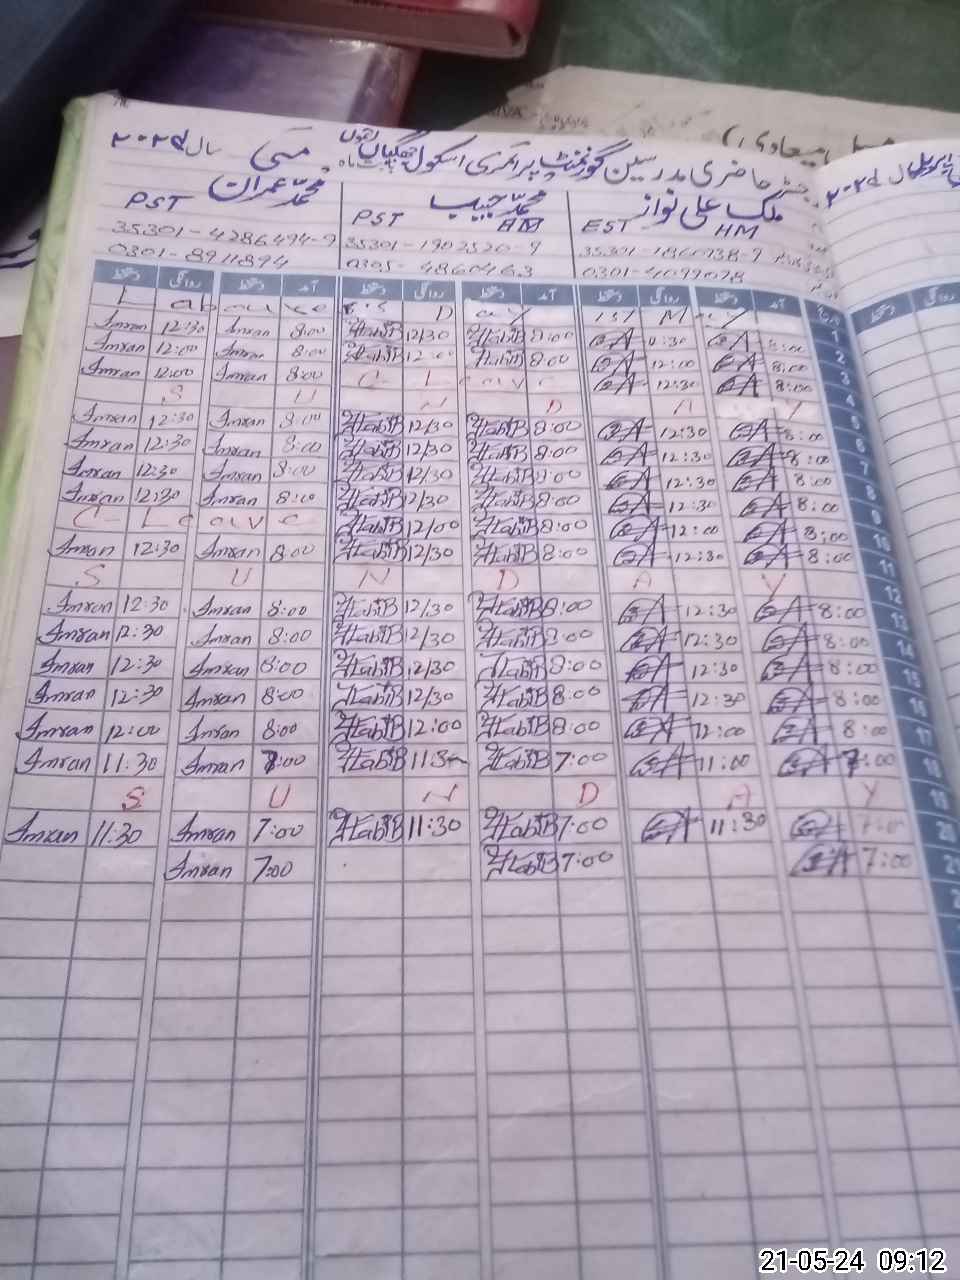 رجسٹر حاضری مدرسین گورنمنٹ پرائمری اسکول جھگیاں ماہ مئی سال ۲۰۲۴
ملک علی نواز
EST HM
35301-1860738-9
0301-4099078
محمد حبیب
PST HM
35301-1902520-9
0305-4860463
محمد عمران
PST
35301-4286494-9
0301-8911894
دستخط روانگی دستخط آمد دستخط روانگی دستخط آمد دستخط روانگی دستخط آمد تاریخ
Labour's Day 1st May 1
Imran 12:30 Imran 8:00 Habib 12/30 Habib 8:00 8:00 2
Imran 12:00 Imran 8:00 Habib 12:00 Habib 8:00 12:00 8:00 3
Imran 12:00 Imran 8:00 C-Leave 12:30 8:00 4
SUNDAY 5
Imran 12:30 Imran 8:00 Habib 12/30 Habib 8:00 12:30 8:00 6
Imran 12:30 Imran 8:00 Habib 12/30 Habib 8:00 12:30 8:00 7
Imran 12:30 Imran 8:00 Habib 12/30 Habib 8:00 12:30 8:00 8
Imran 12:30 Imran 8:00 Habib 12/30 Habib 8:00 12:30 8:00 9
C-Leave Habib 12/00 Habib 8:00 12:00 8:00 10
Imran 12:30 Imran 8:00 Habib 12/30 Habib 8:00 12:30 8:00 11
SUNDAY 12
Imran 12:30 Imran 8:00 Habib 12/30 Habib 8:00 12:30 8:00 13
Imran 12:30 Imran 8:00 Habib 12/30 Habib 8:00 12:30 8:00 14
Imran 12:30 Imran 8:00 Habib 12/30 Habib 8:00 12:30 8:00 15
Imran 12:30 Imran 8:00 Habib 12/30 Habib 8:00 12:30 8:00 16
Imran 12:00 Imran 8:00 Habib 12:00 Habib 8:00 12:00 8:00 17
Imran 11:30 Imran 7:00 Habib 11:30 Habib 7:00 11:00 7:00 18
SUNDAY 19
Imran 11:30 Imran 7:00 Habib 11:30 Habib 7:00 11:30 20
Imran 7:00 Habib 7:00 7:00 21
اپریل سال ۲۰۲۴
21-05-24 09:12